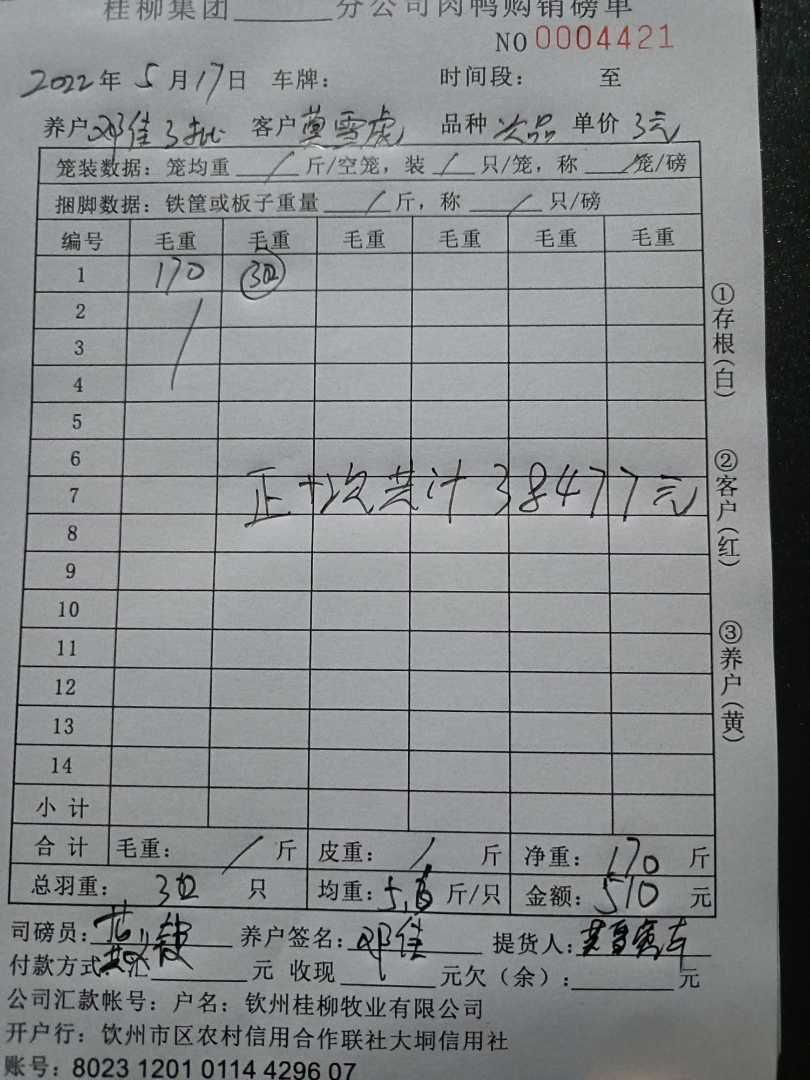 桂柳集团______分公司肉鸭购销磅单
NO 0004421
2022年5月17日 车牌： 时间段： 至
养户 邓佳3批 客户 莫雪虎 品种 次品 单价 3元
笼装数据：笼均重 / 斤/空笼，装 / 只/笼，称 / 笼/磅
捆脚数据：铁筐或板子重量 / 斤，称 / 只/磅
编号 毛重 毛重 毛重 毛重 毛重 毛重
1 170
2
3
4
5
6
7 正+次共计38477元
8
9
10
11
12
13
14
小计
合计 毛重： / 斤 皮重： / 斤 净重：170 斤
总羽重： 只 均重： 斤/只 金额：510 元
司磅员： 养户签名：邓佳 提货人：
付款方式：汇 元 收现 元欠（余）： 元
公司汇款帐号：户名：钦州桂柳牧业有限公司
开户行：钦州市区农村信用合作联社大垌信用社
账号：8023 1201 0114 4296 07
①存根(白)
②客户(红)
③养户(黄)